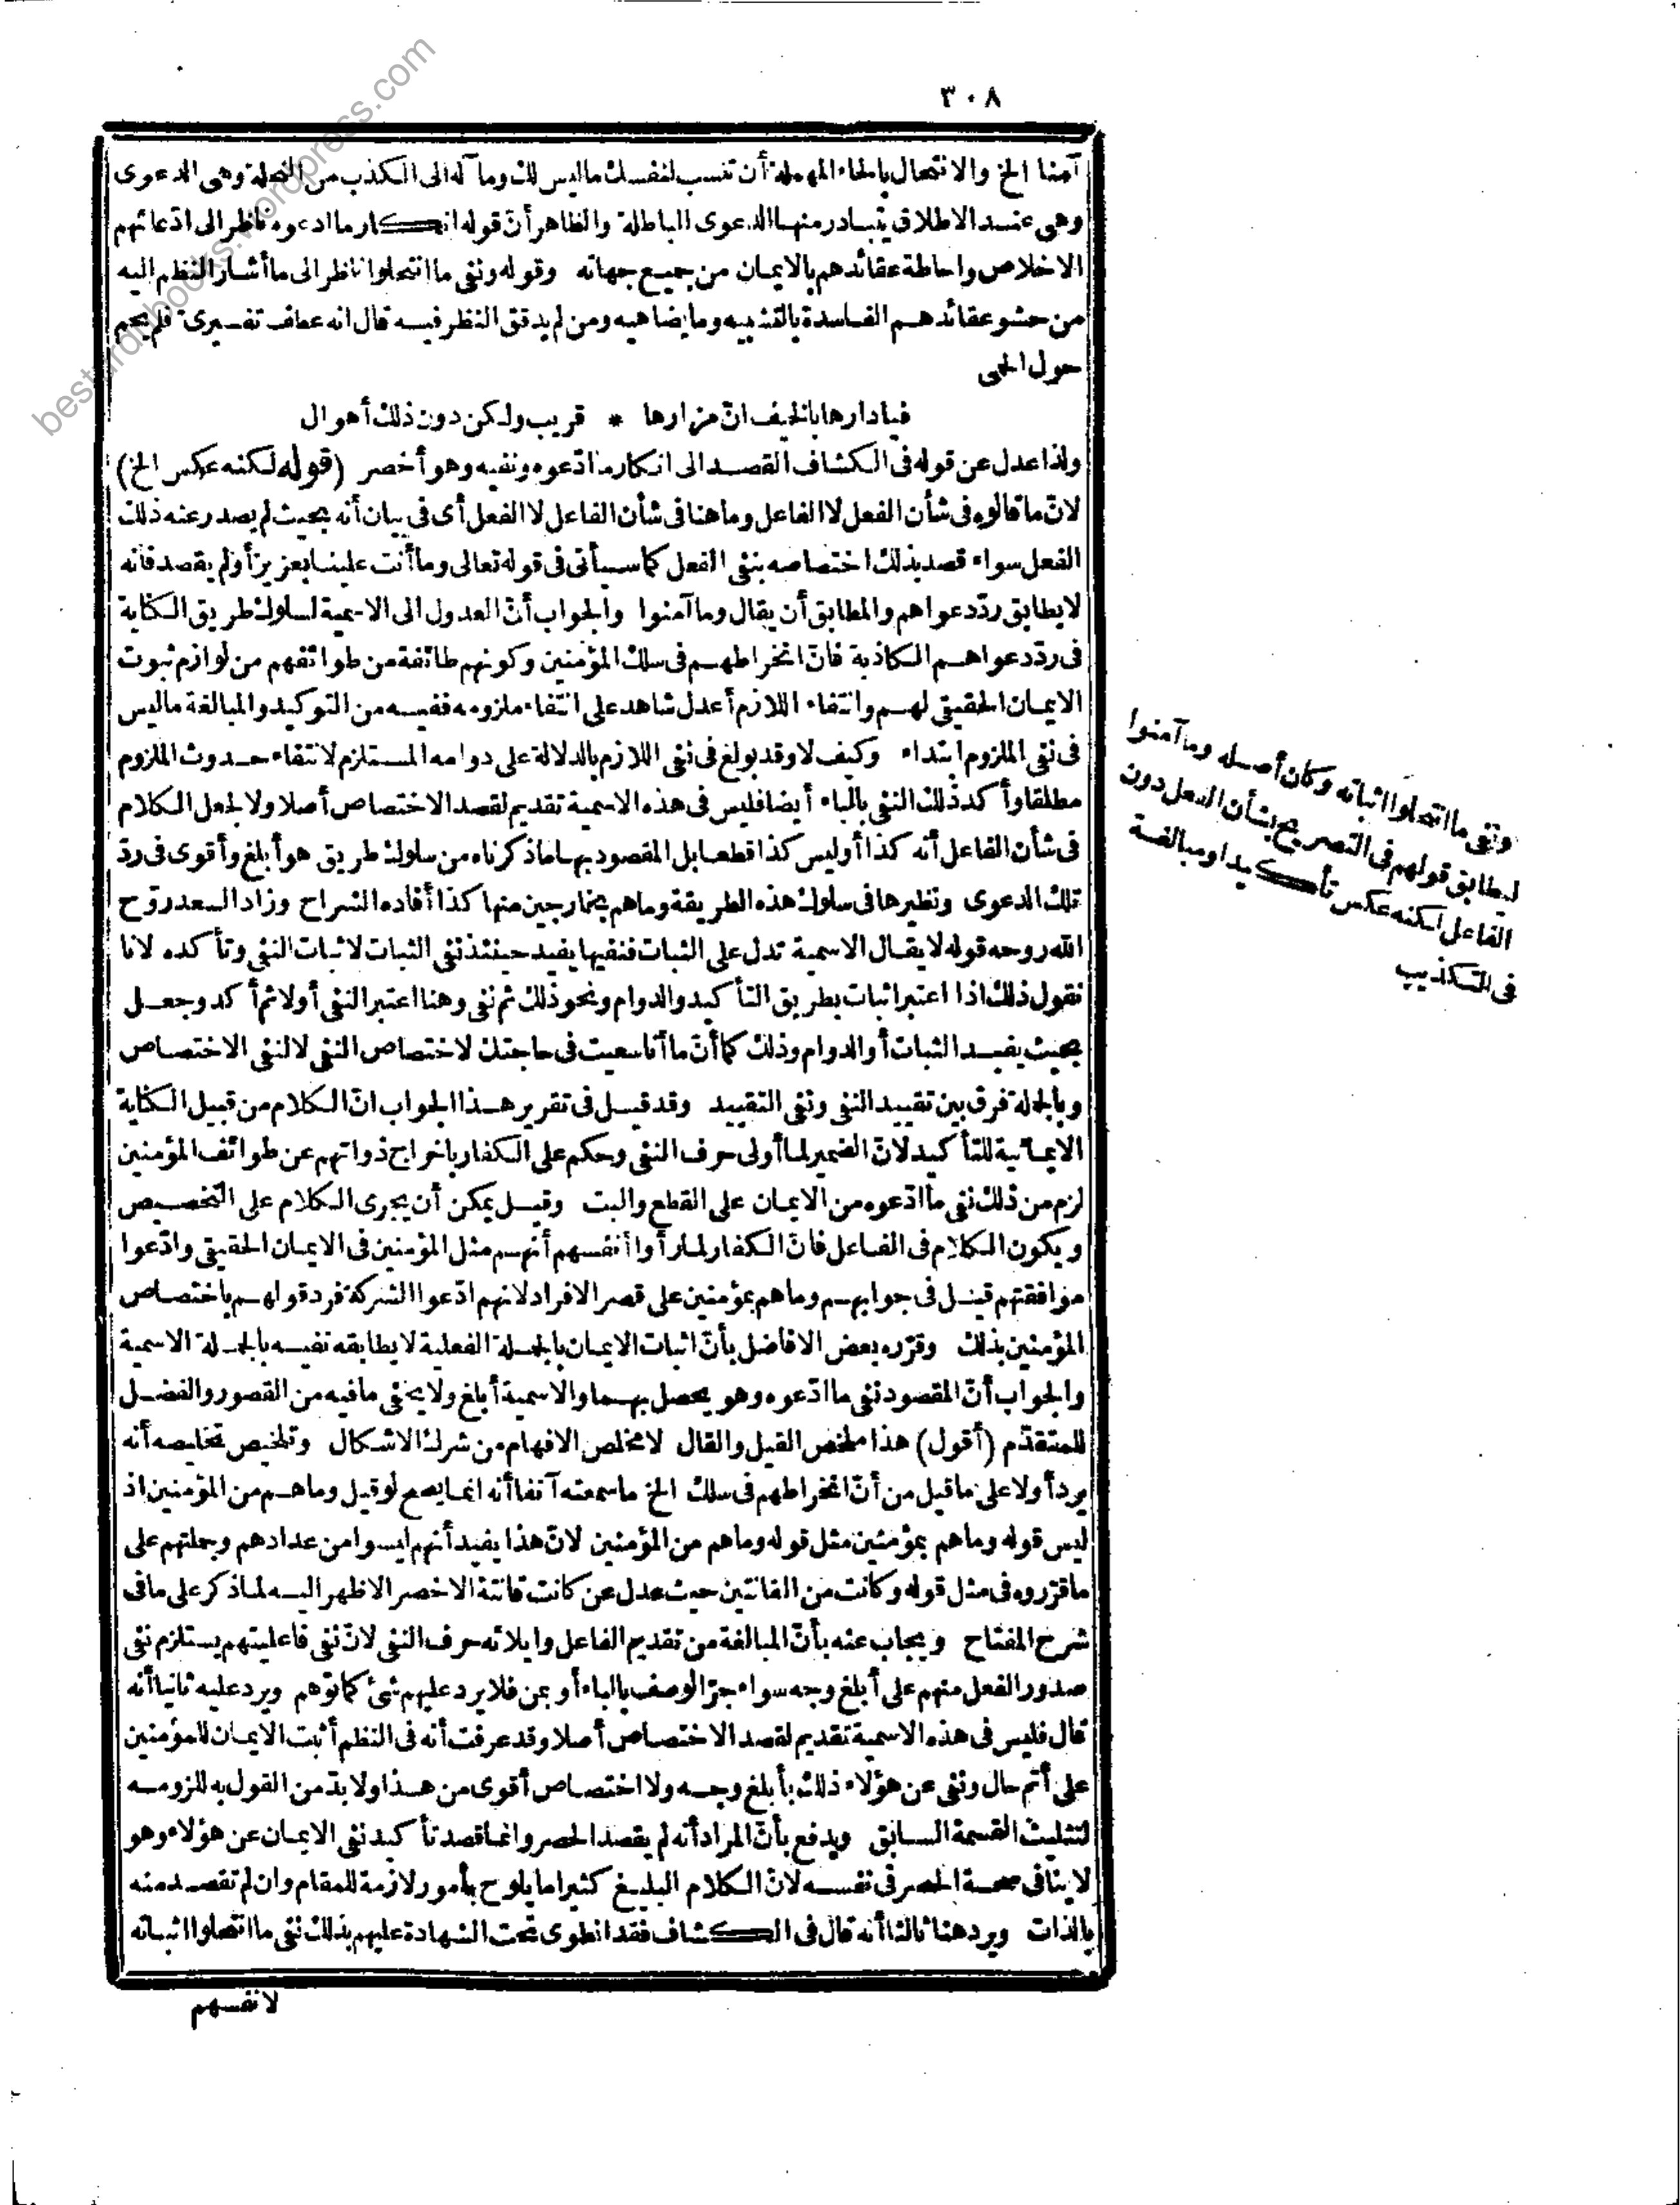 ٣٠٨
آمنا الخ والانتحال بالحاء المهملة أن تنسب لنفسك ماليس لك وما آله الى الكذب من النحلة وهى الدعوى
وهى عنسد الاطلاق يتبادر منها الدعوى الباطلة والظاهر أنّ قوله انكار ما ادعوه ناظر الى ادّعائهم
الاخلاص واحاطة عقائدهم بالايمان من جميع جهاته وقوله ونفى ما انتحلوا ناظر الى ما أشار النظم اليه
من حشو عقائدهم الفاسدة بالتشبيه وما يضاهيه ومن لم يدقق النظر فيه قال انه عطف تفسيرى فلم يحم
حول الحمى
فيادارها بالخيف انّ مزارها * قريب ولكن دون ذلك أهوال
ولذا عدل عن قوله فى الكشاف القصد الى انكار ما ادّعوه ونفيه وهو أخصر (قوله لكنه عكس الخ)
لانّ ما قالوه فى شأن الفعل لا الفاعل وما هنا فى شأن الفاعل لا الفعل أى فى بيان أنه بحيث لم يصدر عنه ذلك
الفعل سواء قصد بذلك اختصاصه بنفى الفعل كما سيأتى فى قوله تعالى وما أنت علينا بعزيز أولم يقصد فانه
لا يطابق ردّ دعواهم والمطابق أن يقال وما آمنوا والجواب أنّ العدول الى الاسمية لسلوك طريق الكناية
فى ردّ دعواهم الكاذبة فانّ انخراطهم فى سلك المؤمنين وكونهم طائفة من طوائفهم من لوازم ثبوت
الايمان الحقيقى لهم وانتفاء اللازم أعدل شاهد على انتفاء ملزومه ففيه من التوكيد والمبالغة ماليس
فى نفى الملزوم ابتداء وكيف لا وقد بولغ فى نفى اللازم بالدلالة على دوامه المستلزم لانتفاء حدوث الملزوم
مطلقا وأكد ذلك النفى بالباء أيضا فليس فى هذه الاسمية تقديم لقصد الاختصاص أصلا ولا لجعل الكلام
فى شأن الفاعل أنه كذا أوليس كذا قطعا بل المقصود بها ما ذكرناه من سلوك طريق هو أبلغ وأقوى فى ردّ
تلك الدعوى ونظيرها فى سلوك هذه الطريقة وما هم بخارجين منها كذا أفاده الشراح وزاد السعد روّح
الله روحه قوله لا يقال الاسمية تدل على الثبات فنفيها يفيد حينئذ نفى الثبات لا ثبات النفى وتأكده لانا
نقول ذلك اذا اعتبر اثبات بطريق التأكيد والدوام ونحو ذلك ثم نفى وهنا اعتبر النفى أولا ثم أكد وجعل
بحيث يفيد الثبات أو الدوام وذلك كما أنّ ما أنا سعيت فى حاجتك لاختصاص النفى لا لنفى الاختصاص
وبالجملة فرق بين تقييد النفى ونفى التقييد وقد قيل فى تقرير هذا الجواب انّ الكلام من قبيل الكناية
الايمائية للتأكيد لانّ الضمير لما أولى حرف النفى وحكم على الكفار باخراج ذواتهم عن طوائف المؤمنين
لزم من ذلك نفى ما ادّعوه من الايمان على القطع والبت وقيل يمكن أن يجرى الكلام على التخصيص
ويكون الكلام فى الفاعل فانّ الكفار لما رأوا أنفسهم أنهم مثل المؤمنين فى الايمان الحقيقى وادّعوا
موافقتهم قيل فى جوابهم وما هم بمؤمنين على قصر الافراد لانهم ادّعوا الشركة فردّ قولهم باختصاص
المؤمنين بذلك وقرّره بعض الافاضل بأنّ اثبات الايمان بالجملة الفعلية لا يطابقه نفيه بالجملة الاسمية
والجواب أنّ المقصود نفى ما ادّعوه وهو يحصل بهما والاسمية أبلغ ولا يخفى ما فيه من القصور والفضل
للمتقدّم (أقول) هذا ملخص القيل والقال لا مخلص الافهام من شرك الاشكال وتلخيص تخليصه أنه
يرد أولا على ما قيل من أنّ انخراطهم فى سلك الخ ما سمعته آنفا أنه انما يصح لو قيل وما هم من المؤمنين اذ
ليس قوله وما هم بمؤمنين مثل قوله وما هم من المؤمنين لانّ هذا يفيد أنهم ليسوا من عدادهم وجملتهم على
ما قرّروه فى مثل قوله وكانت من القانتين حيث عدل عن كانت قانتة الاخصر الاظهر اليه لما ذكر على ما فى
شرح المفتاح ويجاب عنه بأنّ المبالغة من تقديم الفاعل وايلائه حرف النفى لانّ نفى فاعليتهم يستلزم نفى
صدور الفعل منهم على أبلغ وجه سواء جرّ الوصف بالباء أو بمن فلا يرد عليهم شئ كما توهم ويرد عليه ثانيا أنه
قال فليس فى هذه الاسمية تقديم لقصد الاختصاص أصلا وقد عرفت أنه فى النظم أثبت الايمان للمؤمنين
على أتم حال ونفى عن هؤلاء ذلك بأبلغ وجه ولا اختصاص أقوى من هذا ولا بدّ من القول به للزومه
لتثليث القسمة السابق ويدفع بأنّ المراد أنه لم يقصد الحصر وانما قصد تأكيد نفى الايمان عن هؤلاء وهو
لا ينافى صحة الحصر فى نفسه لانّ الكلام البليغ كثيرا ما يلوح بأمور لازمة للمقام وان لم تقصد منه
بالذات ويرد هنا ثالثا أنه قال فى الكشاف فقد انطوى تحت الشهادة عليهم بذلك نفى ما انتحلوا اثباته
لانفسهم
ونفى ما انتحلوا اثباته وكان أصله وما آمنوا
ليطابق قولهم فى التصريح بشأن الفعل دون
الفاعل لكنه عكس تأكيدا ومبالغة
فى التكذيب
besturdubooks.wordpress.com